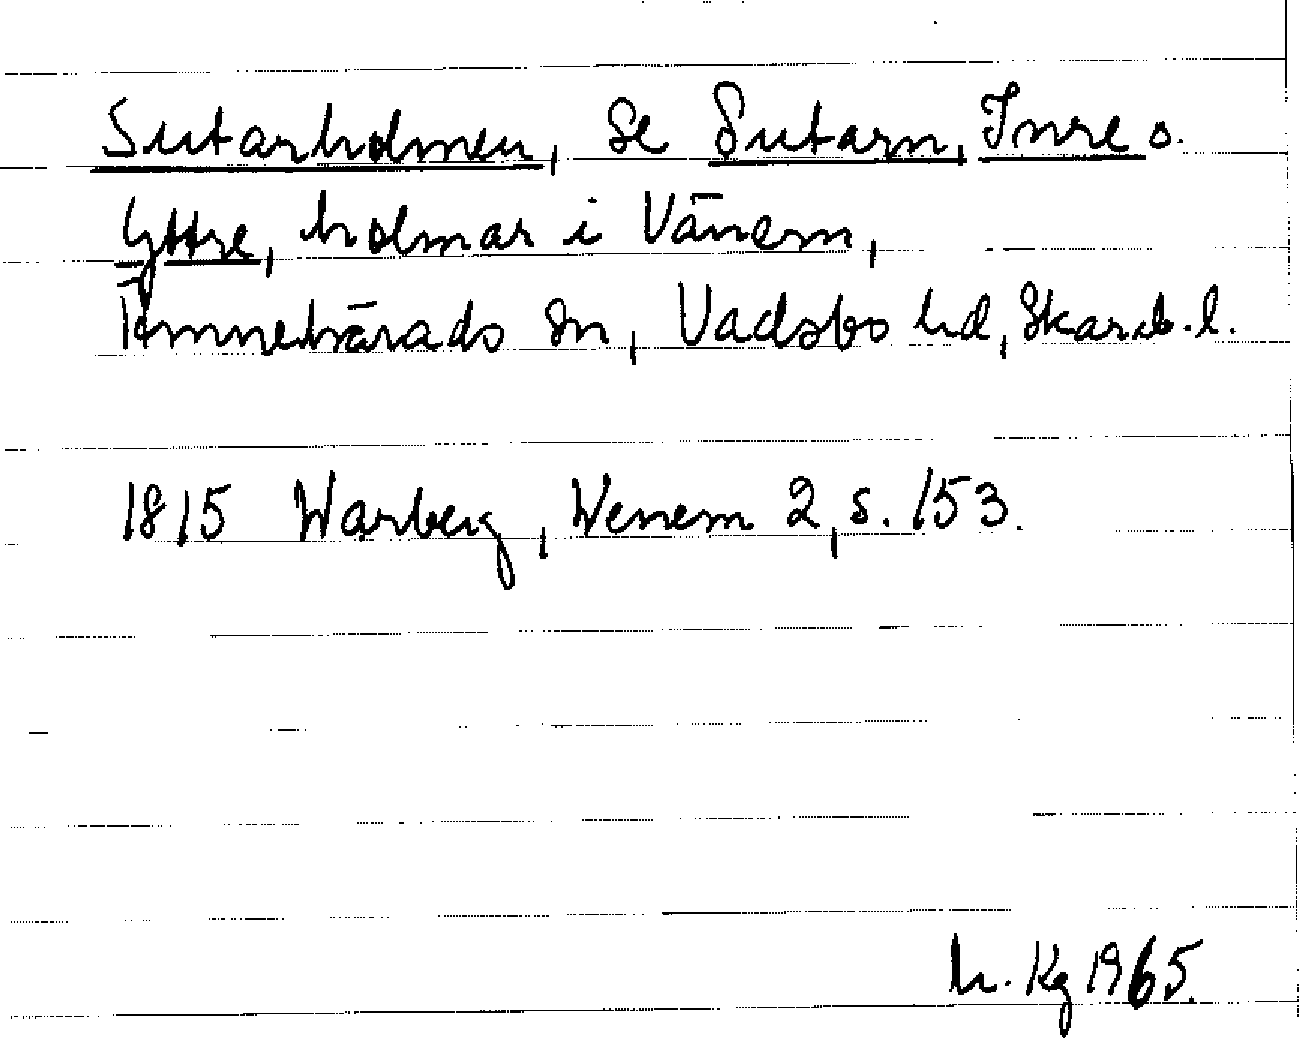 Sutarholmen, se Sutarn, Inre o.
Yttre, holmar i Vänern,
Amnehärads sn, Vadsbo hd, Skarab.l.
1815 Warberg, Wenern 2, s. 153.
h. Kg 1965.